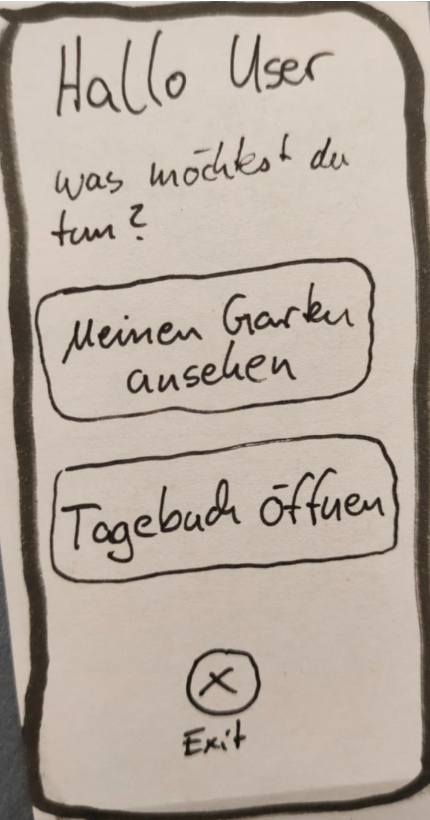 Hallo User
was möchtest du
tun?
Meinen Garten
ansehen
Tagebuch öffnen
X
Exit